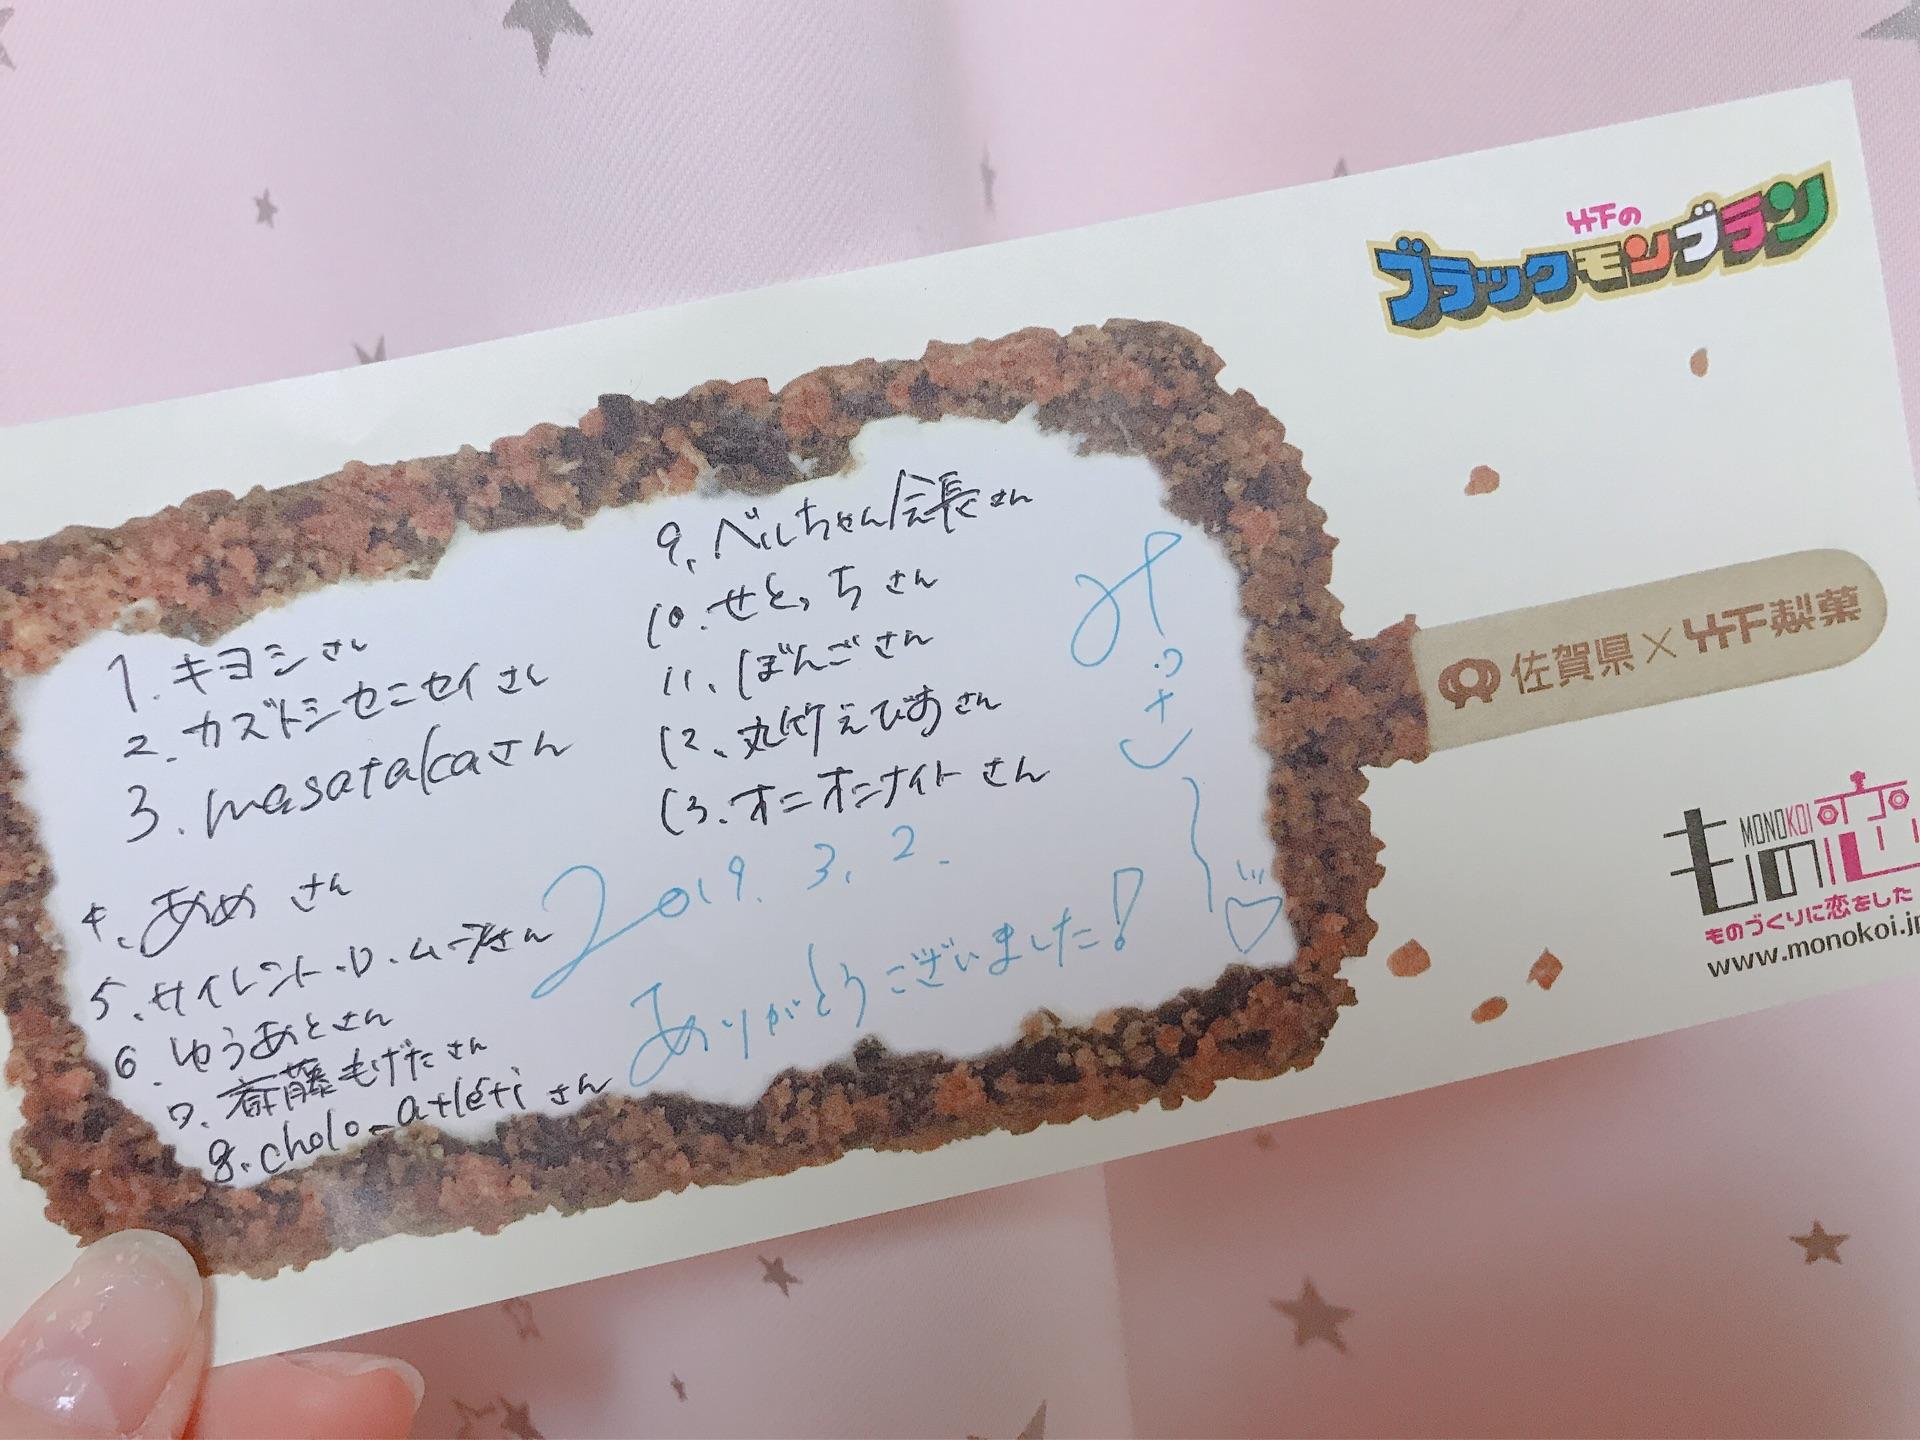 竹下の
ブラックモンブラン
1. キヨシさん
2. カズトシセニセイさん
3. masatakaさん
4. あめ さん
5. サイレント・D・ムーアさん
6. ゆうあとさん
7. 斎藤もげたさん
8. cholo_atletiさん
9. べルちゃん会長さん
10. せとっちさん
11. ぼんごさん
12. 丸竹えびすさん
13. オニオニナイトさん
2019. 3. 2.
ありがとうございました!
佐賀県×竹下製菓
MONOKOI
もの恋
ものづくりに恋をした
www.monokoi.j